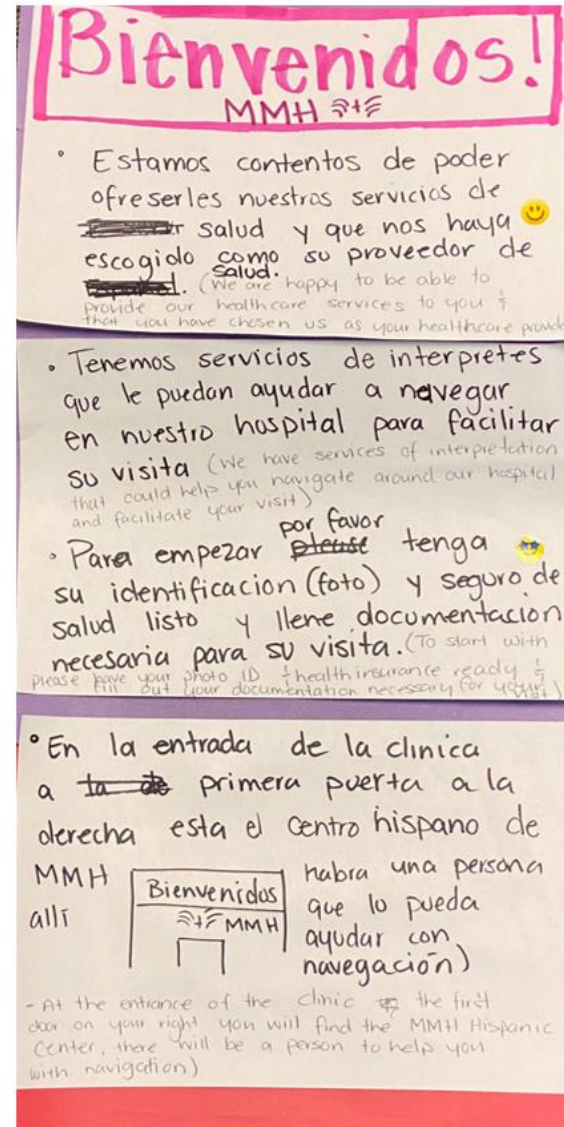 Bienvenidos!
MMH
• Estamos contentos de poder
ofreserles nuestros servicios de
salud y que nos haya
escogido como su proveedor de
salud.
(We are happy to be able to
provide our healthcare services to you &
that you have chosen us as your healthcare provide
• Tenemos servicios de interpretes
que le puedan ayudar a navegar
en nuestro hospital para facilitar
su visita (We have services of interpretation
that could help you navigate around our hospital
and facilitate your visit)
por favor
• Para empezar please tenga
su identificacion (foto) y seguro de
salud listo y llene documentacion
necesaria para su visita. (To start with
please have your photo ID & health insurance ready &
fill out your documentation necessary for your visit)
• En la entrada de la clinica
a la de primera puerta a la
derecha esta el centro hispano de
MMH
alli
Bienvenidos
MMH
habra una persona
que lo pueda
ayudar con
navegación)
- At the entrance of the clinic the first
door on your right you will find the MMH Hispanic
Center, there will be a person to help you
with navigation)